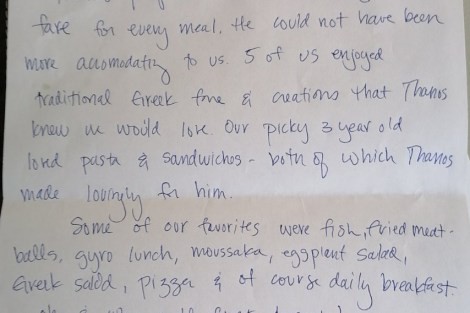 fare for every meal. He could not have been
more accomodating to us. 5 of us enjoyed
traditional Greek fare & creations that Thanos
knew we would love. Our picky 3 year old
loved pasta & sandwiches - both of which Thanos
made lovingly for him.
Some of our favorites were fish, fried meat-
balls, gyro lunch, moussaka, eggplant salad,
Greek salad, pizza & of course daily breakfast.